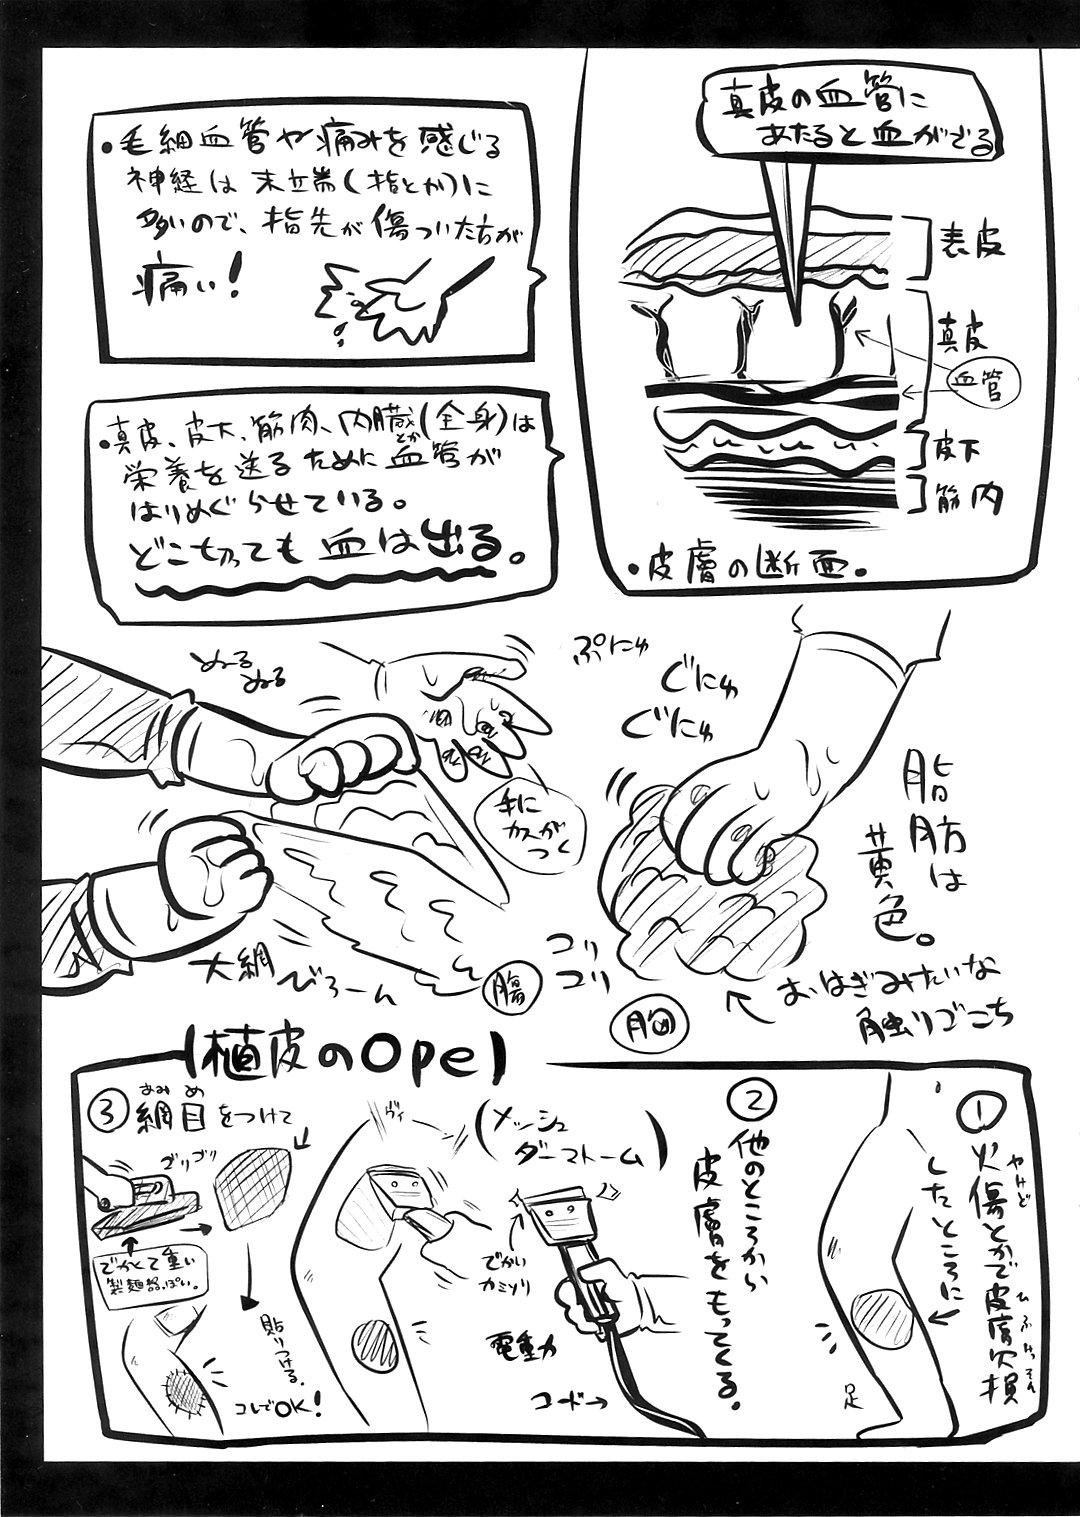 真皮の血管に
あたると血がでる
表皮
真皮
血管
皮下
筋肉
・皮膚の断面。
・毛細血管や痛みを感じる
神経は末端(指とか)に
多いので、指先が傷ついた方が
痛い!
・真皮、皮下、筋肉、内臓とか(全身)は
栄養を送るために血管が
はりめぐらせている。
どこ切っても血は出る。
ぷにゅ
ぐにゅ
ぐにゅ
脂肪は
黄色。
おはぎみたいな
触りごこち
コリ
コリ
胸
ぬーる
ぬる
手に
カスが
つく
大網
びろーん
腸
【植皮のOpe】
①
火傷とかで皮膚欠損
やけど
ひふけっそん
したところに
足
②
他のところから
皮膚をもってくる。
(メッシュ
ダーマトーム)
でかい
カミソリ
電動
コード→
ヴィ
③
網目をつけて
あみめ
ゴリゴリ
でかくて重い
製麺器っぽい。
貼りつける。
コレでOK!